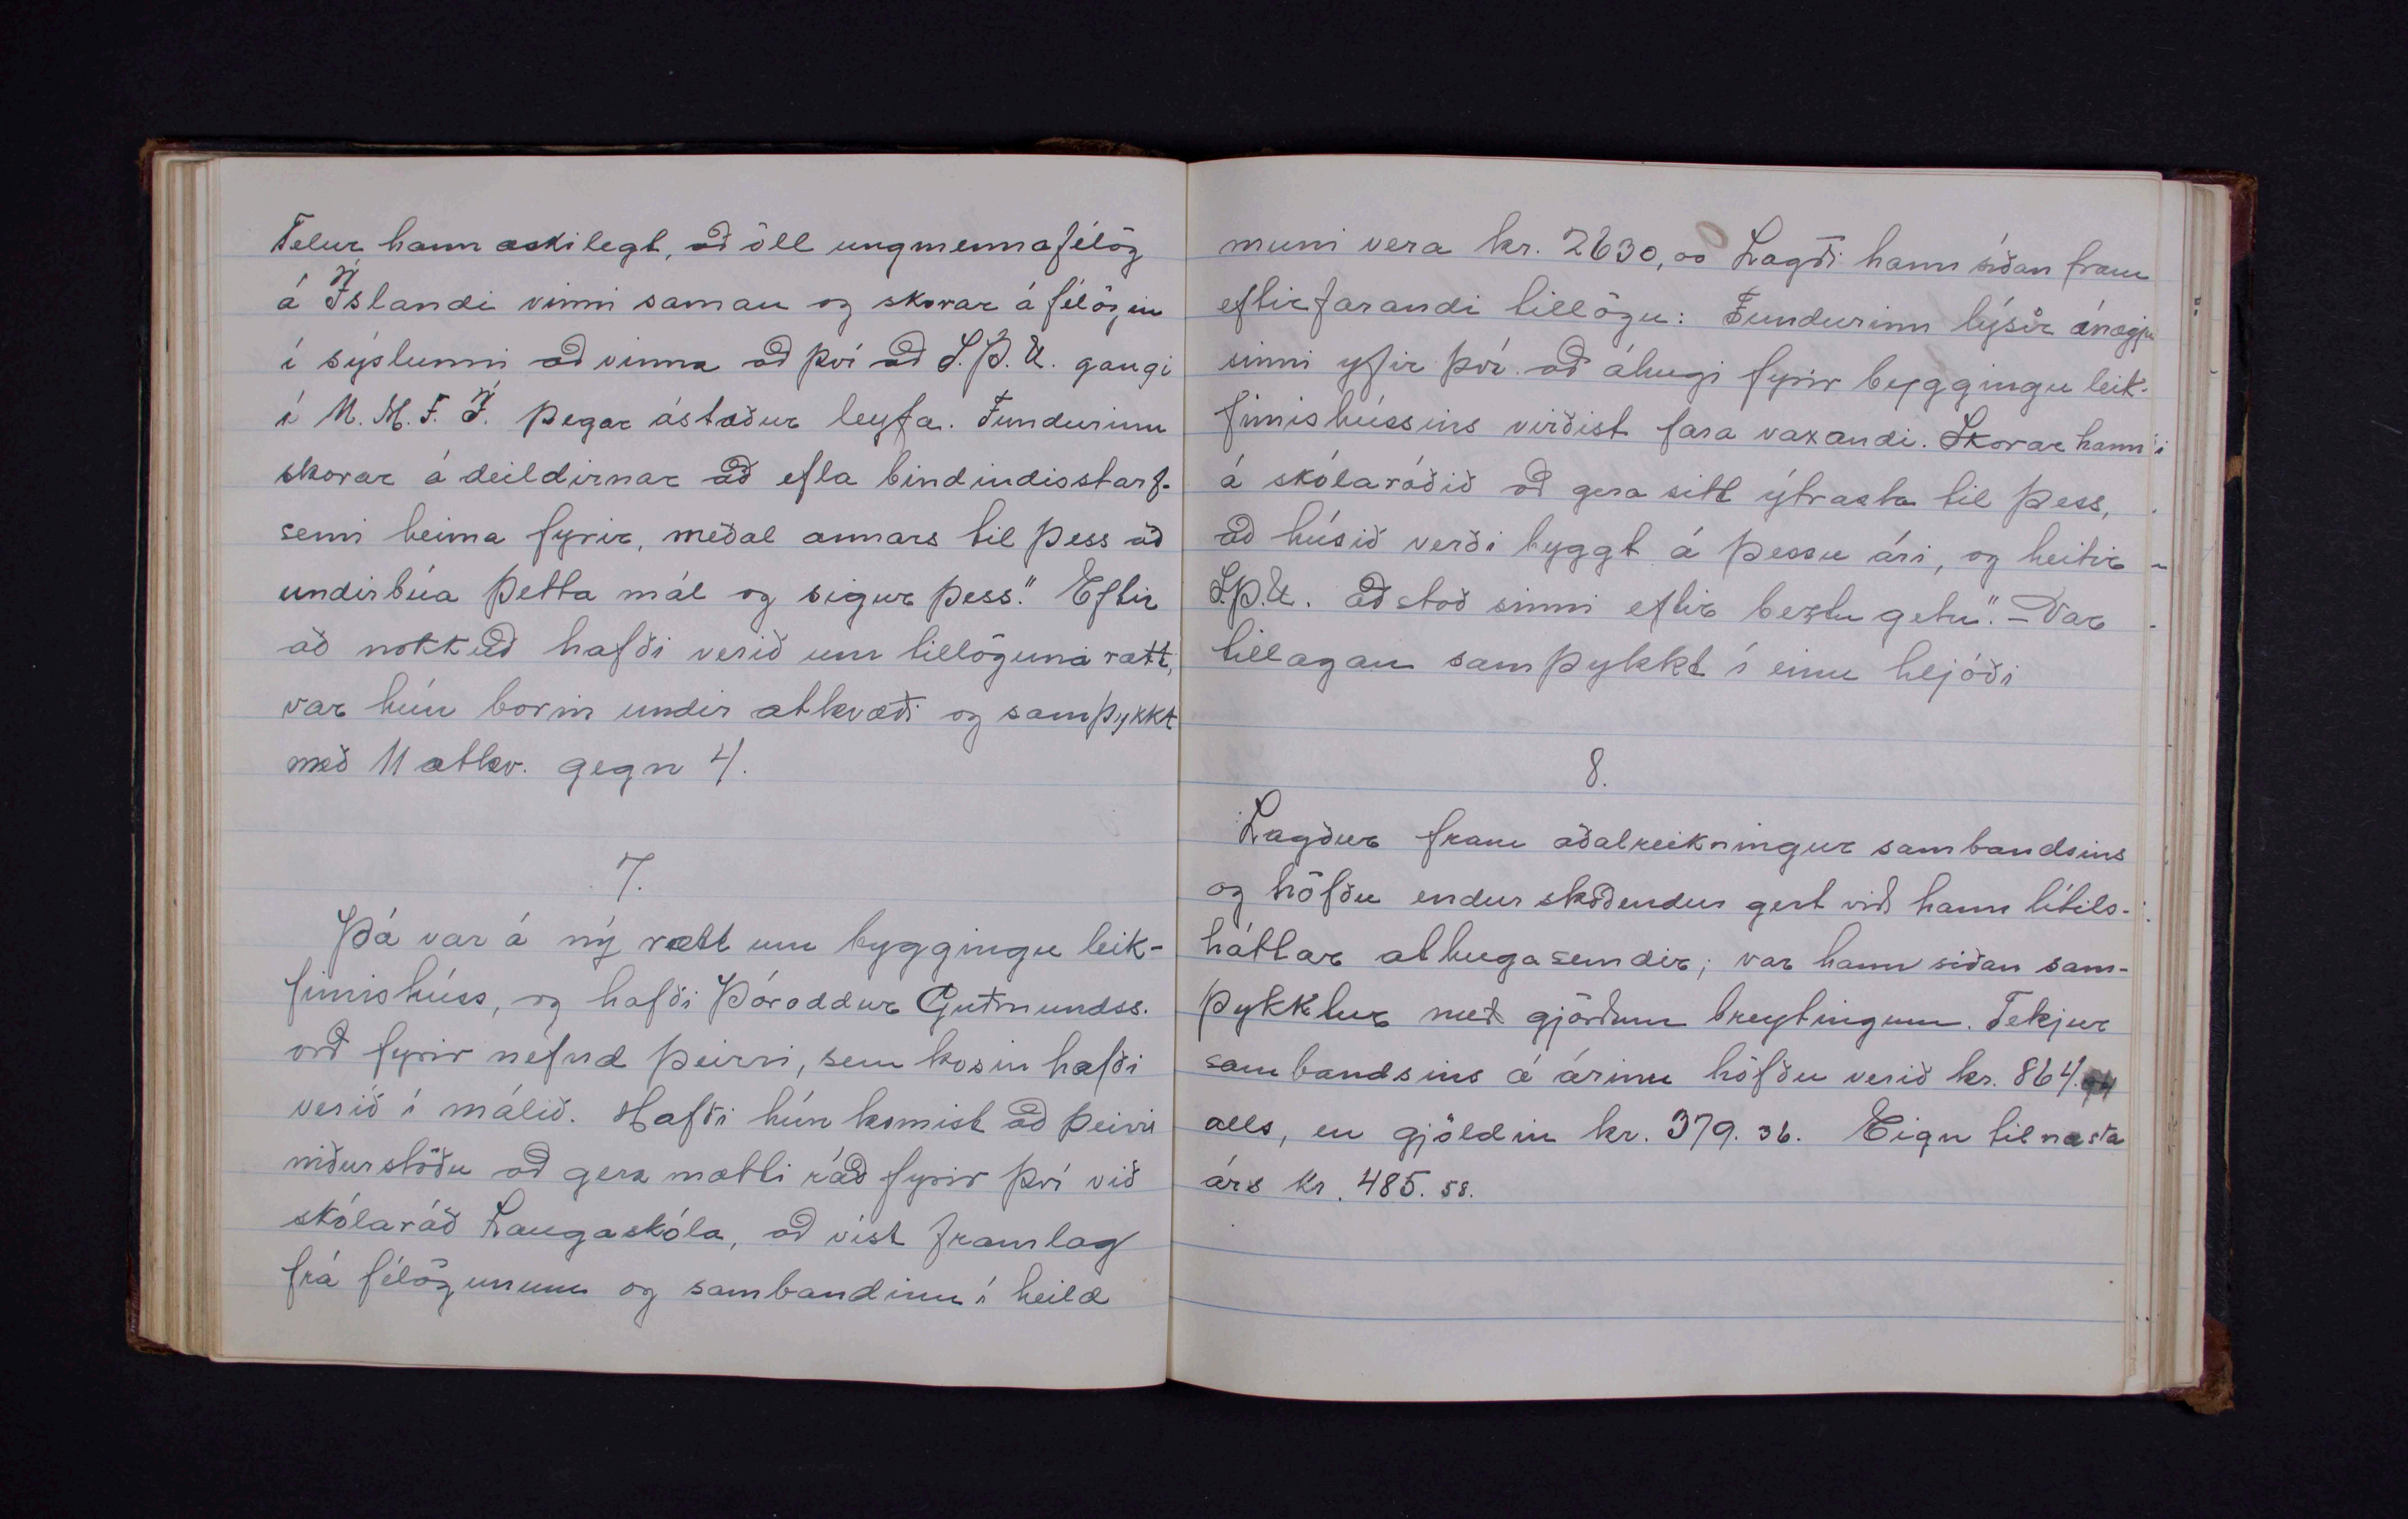 Telur hann æskilegt, að öll ungmennafélög
á Íslandi vinni saman og skorar á félögin
í sýslunni að vinna að því að S.Þ.U. gangi
í U.M.F.Í. þegar ástæður leyfa. Fundurinn
skorar á deildirnar að efla bindindisstarf-
semi heima fyrir, meðal annars til þess að
undirbúa þetta mál og sigur þess." Eftir
að nokkuð hafði verið um tillöguna rætt,
var hún borin undir atkvæði og samþykkt
með 11 atkv. gegn 4.
7.
Þá var á ný rætt um byggingu leik-
fimishúss, og hafði Þóroddur Guðmundss.
orð fyrir nefnd þeirri, sem kosin hafði
verið í málið. Hafði hún komist að þeirri
niðurstöðu að gera mætti ráð fyrir því við
skólaráð Laugaskóla, að vist framlag
frá félögunum og sambandinu í heild
muni vera kr. 2630,00 Lagði hann síðan fram
eftirfarandi tillögu: Fundurinn lýsir ánægju
sinni yfir því að áhugi fyrir byggingu leik-
fimishússins virðist fara vaxandi. Skorar hann
á skólaráðið að gera sitt ýtrasta til þess,
að húsið verði byggt á þessu ári, og heitir
S.Þ.U. aðstoð sinni eftir beztu getu". - Var
tillagan samþykkt í einu hljóði
8.
Lagður fram aðalreikningur sambandsins
og höfðu endurskoðendur gert við hann lítils-
háttar athugasemdir; var hann síðan sam-
þykktur með gjörðum breytingum. Tekjur
sambandsins á árinu höfðu verið kr. 864.94
alls, en gjöldin kr. 379.36. Eign til næsta
árs kr. 485.58.